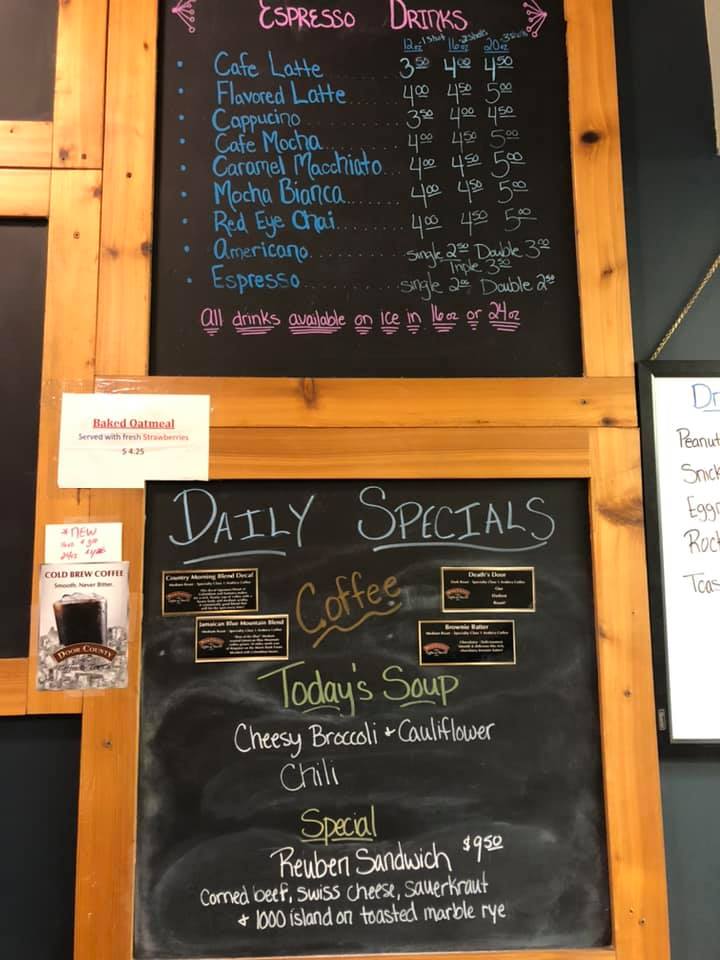 Espresso Drinks
12oz 1 Shot 16oz 2 Shots 20oz 3 Shots
• Cafe Latte 3.50 4.00 4.50
• Flavored Latte 4.00 4.50 5.00
• Cappucino 3.50 4.00 4.50
• Cafe Mocha 4.00 4.50 5.00
• Caramel Macchiato 4.00 4.50 5.00
• Mocha Bianca 4.00 4.50 5.00
• Red Eye Chai 4.00 4.50 5.00
• Americano single 2.50 Double 3.00
Triple 3.50
• Espresso single 2.00 Double 2.50
All drinks available on Ice in 16oz or 24oz
Baked Oatmeal
Served with fresh Strawberries
$ 4.25
* NEW
COLD BREW COFFEE
Smooth. Never Bitter.
DOOR COUNTY
Daily Specials
Coffee
Country Morning Blend Decaf
Jamaican Blue Mountain Blend
Death's Door
Brownie Batter
Today's Soup
Cheesy Broccoli + Cauliflower
Chili
Special
Reuben Sandwich $9.50
Corned beef, swiss cheese, sauerkraut
+ 1000 island on toasted marble rye
Dr
Peanut
Snick
Eggn
Rock
Toas